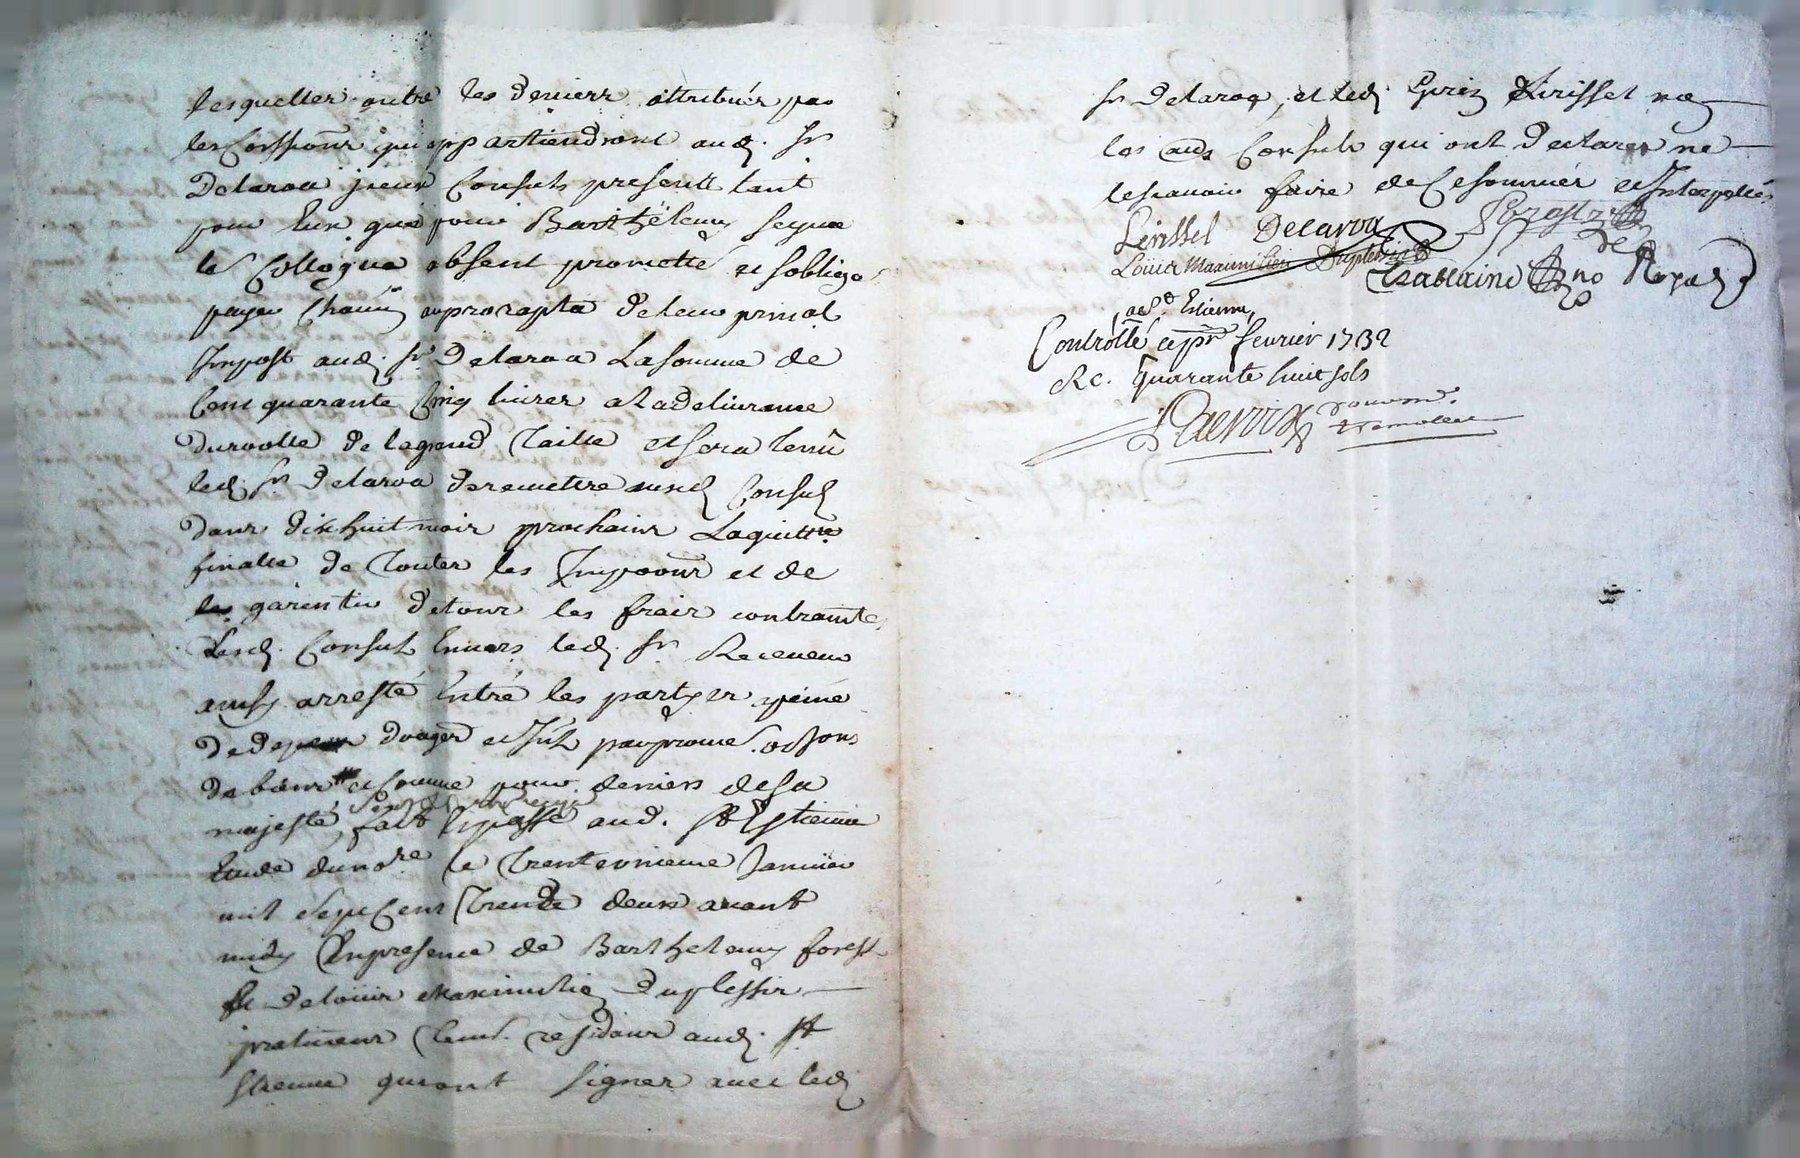 lesquelles outre les deniers attribués par
les Commissions qui appartiendront aud. Sr
Delaroa yceux Consuls presents tant
pour Eux que pour Barthëlemy
le Collogue absent promettre et soblige
payer Chacun au prorapta de leur prinal
Impost aud. Sr Delaroa La somme de
Cent quarante Cinq livres a la delivrance
du roolle de la grand Taille et sera tenû
led. Sr Delaroa de remettre ausd Consuls
dans dix huit mois prochains La quittce
finalle de Toutes les Impoons et de
les garentir de tous les frais contrainte
Lesd. Consuls Envers led. Sr Receveur
ainsy arresté Entre les partyes a peine
de depens et
de biens et Comme pour deniers de sa
majesté, fait Et passé aud. St Estienne
Etude du nore le Trente unieme Janvier
mil Sept Cent Trente deux avant
midy En presence de Barthelemy forest
& de Loüis Maximilien Duplessir
praticiens residans aud. St
Etienne qui ont signer avec led
Sr Delaroa, et led. Lerissel non
les auds Consuls qui ont declarer ne
le scavoir faire de Ce sommés et Interpellés
Lerissel Delaroa Forest
Loüis Maximilien Duplessir
Chastaine no Royal
a St Etienne,
Controllé ce pr fevrier 1732
Rc. quarante huit sols